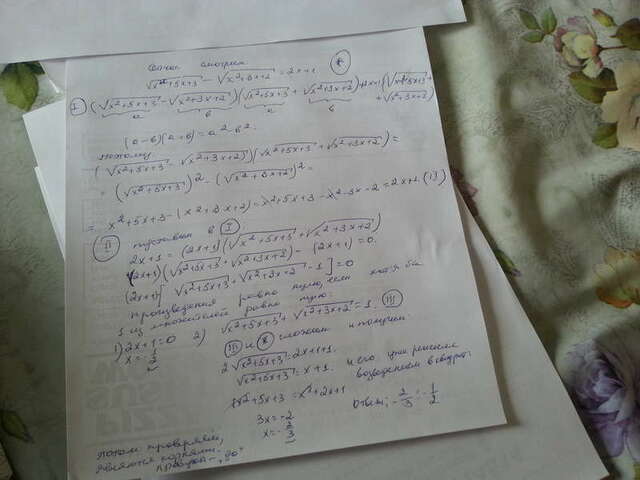 смотрим
√x²+5x+3 - √x²+3x+2 = 2x+1 *
I (√x²+5x+3 - √x²+3x+2)(√x²+5x+3 + √x²+3x+2) = (2x+1)(√x²+5x+3 + √x²+3x+2)
a b a b
(a-b)(a+b) = a²-b².
поэтому
(√x²+5x+3 - √x²+3x+2)(√x²+5x+3 + √x²+3x+2) =
= (√x²+5x+3)² - (√x²+3x+2)² =
= x²+5x+3 - (x²+3x+2) = x²+5x+3 - x²-3x-2 = 2x+1 (II)
II подставим в I
2x+1 = (2x+1)(√x²+5x+3 + √x²+3x+2)
(2x+1)(√x²+5x+3 + √x²+3x+2) - (2x+1) = 0.
(2x+1)[√x²+5x+3 + √x²+3x+2 - 1] = 0
произведение равно нулю, если хотя бы
1 из множителей равно нулю:
1) 2x+1=0 2) √x²+5x+3 + √x²+3x+2 = 1 III
x = -1/2
III и * сложим и получим
2√x²+5x+3 = 2x+1+1
√x²+5x+3 = x+1. и его уже решаем
возведением в квадрат
x²+5x+3 = x²+2x+1
3x = -2
x = -2/3
Ответ: -2/3; -1/2
потом проверяем,
являются корнями.